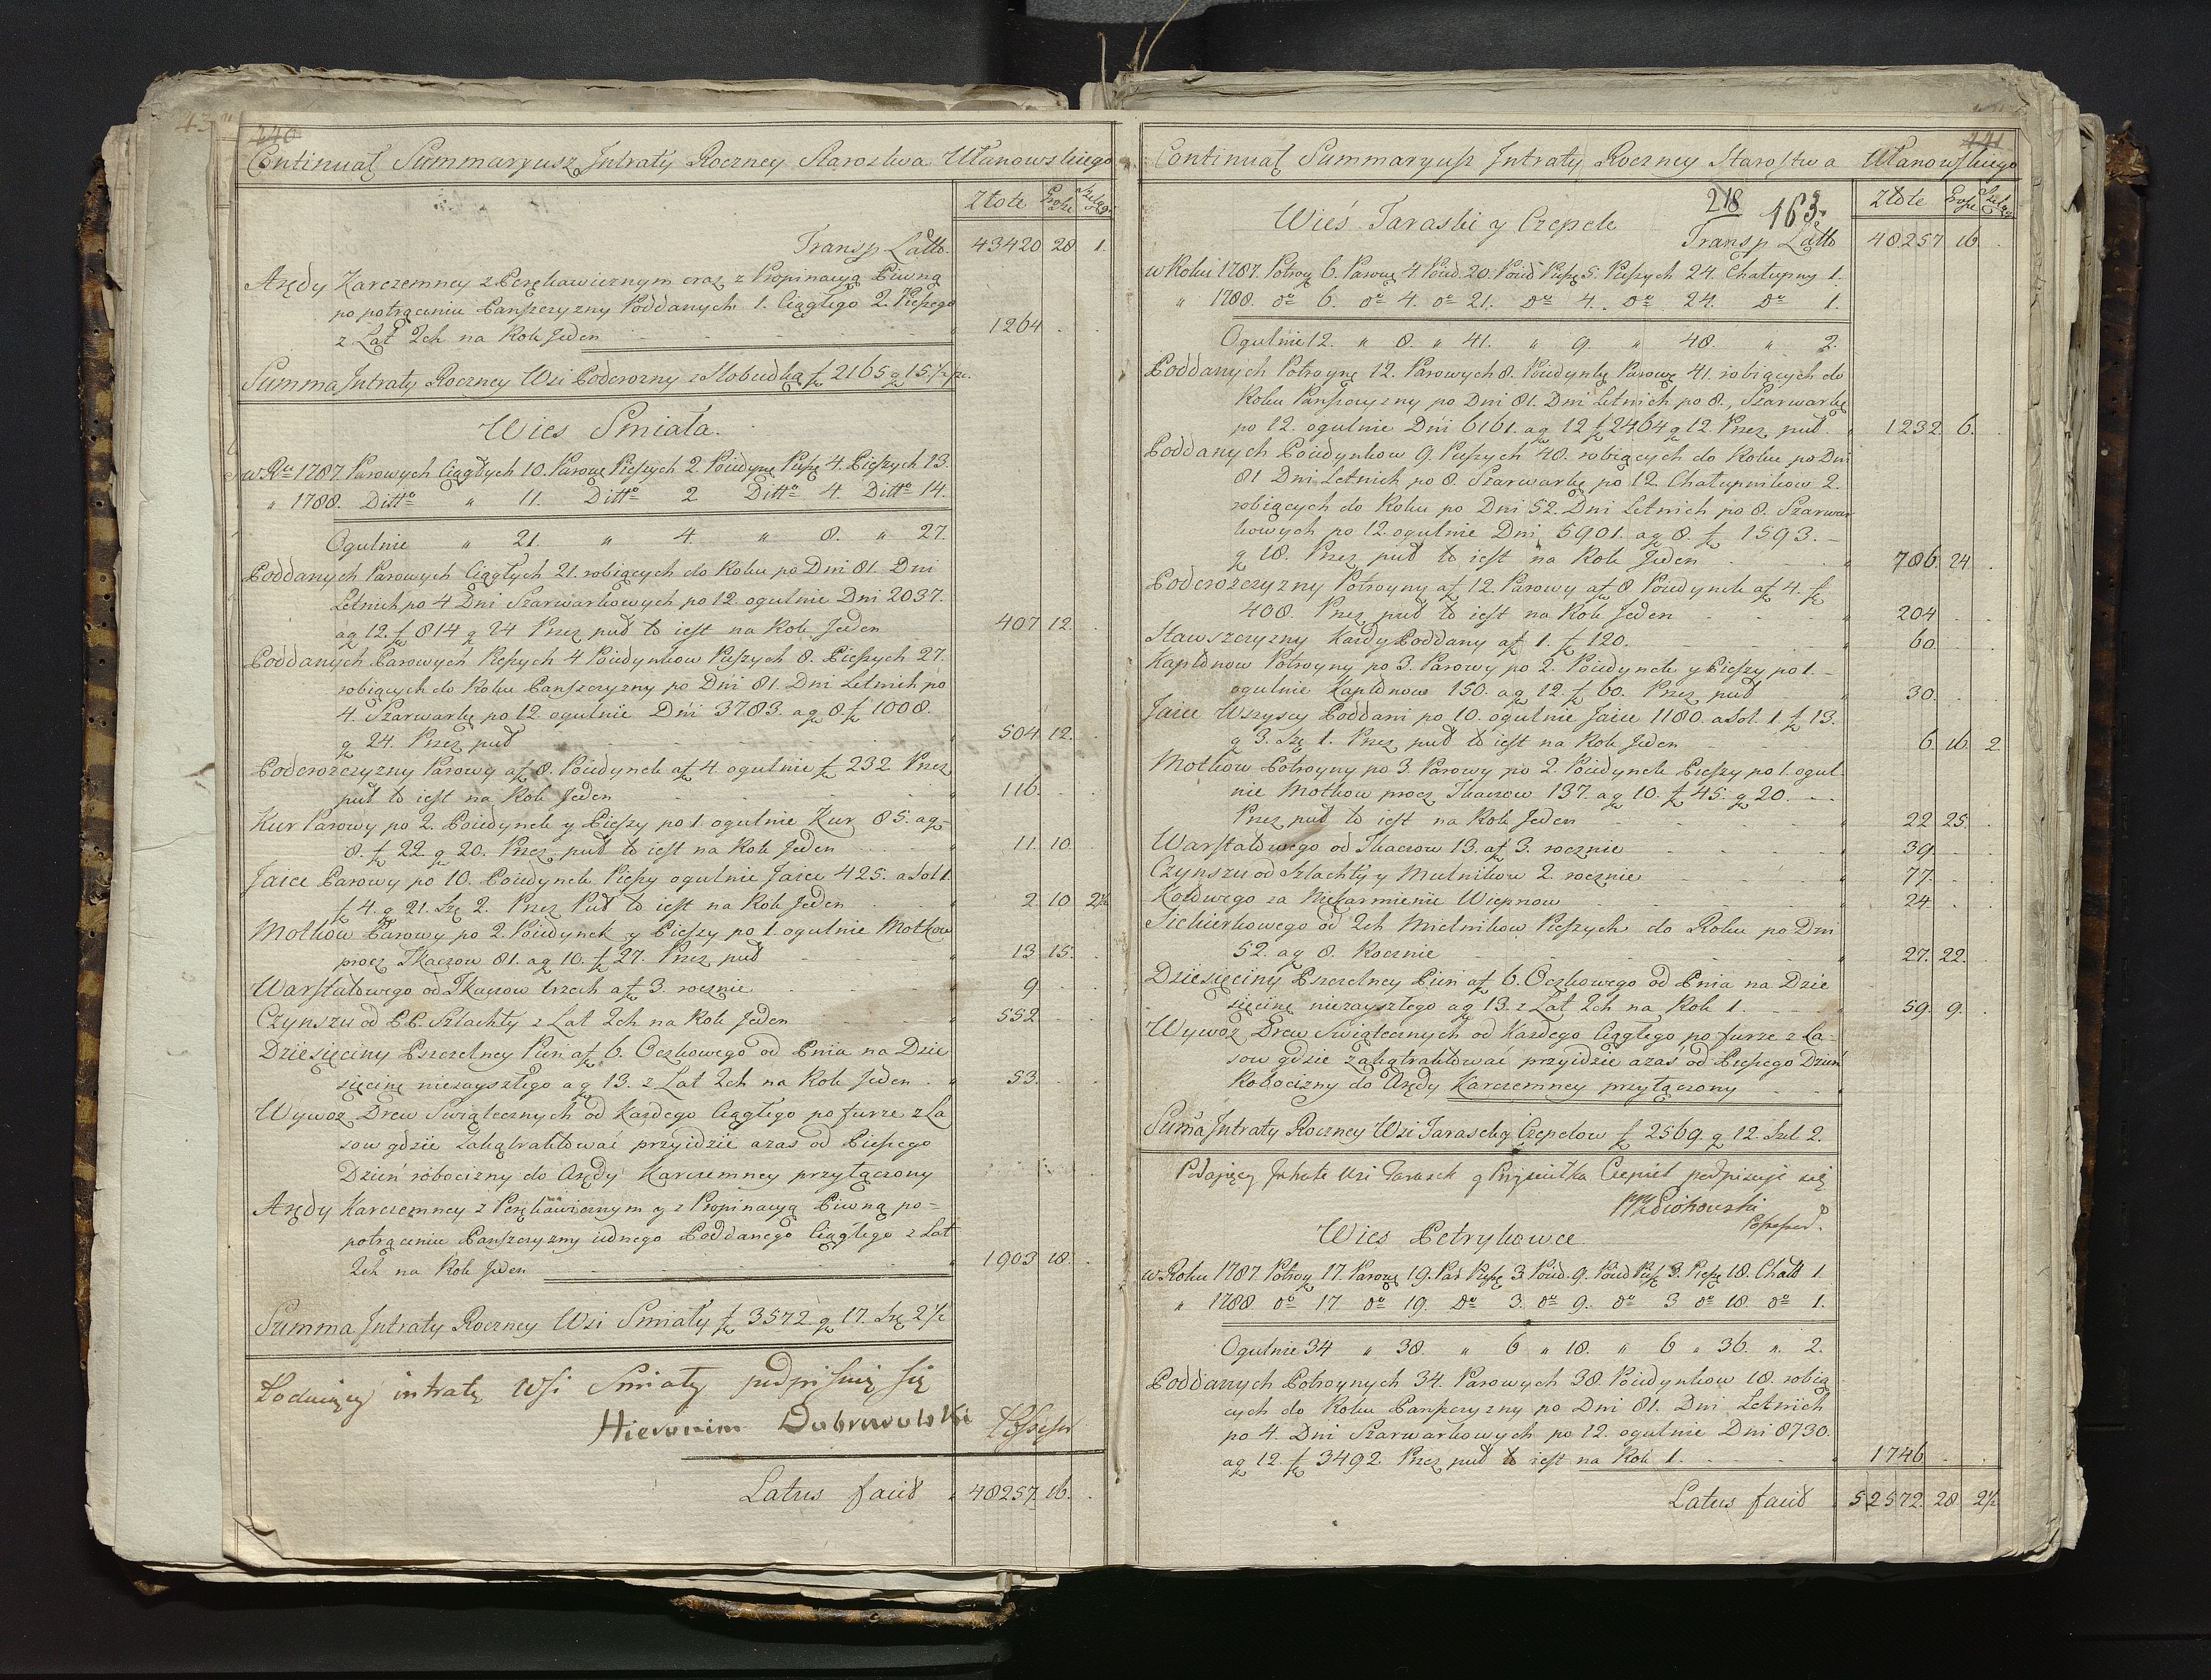 440
Continuat Summaryusz Jntraty Roczney Starostwa Ułanowskiego
Złote Grosze Szelągi
Transp Latto 43420 28 1.
Arędy Karczemney z Perękawicznym oraz z Propinacyą Piwną
po potrąceniu Panszczyzny Poddanych 1. Ciągłego 2. Pieszego
z Lat 2ch na Rok Jeden 1264
Summa Jntraty Roczney Wsi Poderozny z Słobudką f 2165 g 15 1/2
Wies Smiała.
w Ru 1787. Parowych Ciągłych 10. Parowe Pieszych 2. Poiedyne Pusze 4. Pieszych 13.
" 1788. Ditto " 11. Ditto 2 Ditto 4. Ditto 14.
Ogulnie " 21. " 4. " 8. " 27.
Poddanych Parowych Ciągłych 21. robiących do Roku po Dni 81. Dni
Letnich po 4 Dni Szarwarkowych po 12. ogulnie Dni 2037.
ag 12. f 814 g 24 Przez puł to iest na Rok Jeden 407 12.
Poddanych Parowych Pieszych 4 Poiedynkow Pieszych 8. Pieszych 27.
robiących do Roku Panszczyzny po Dni 81. Dni Letnich po
4. Szarwarkę po 12. ogulnie Dni 3783. ag 8 f 1008.
g 24. Przez puł 504 12.
Poderozczyzny Parowy af 8. Poiedynek af 4. ogulnie f 232 Przez
puł to iest na Rok Jeden 116.
Kur Parowy po 2. Poiedynek y Pieszy po 1. ogulnie Kur 85. ag
8. f 22 g 20. Przez puł to iest na Rok Jeden 11. 10.
Jaiec Parowy po 10. Poiedynek Pieszy ogulnie Jaiec 425. a Sol 1
f 4. g 21. Szę 2. Przez Puł to iest na Rok Jeden 2 10 2 1/2
Motkow Parowy po 2. Poiedynek y Pieszy po 1. ogulnie Motkow
procz Tkaczow 81. ag 10. f 27. Przez puł 13 15.
Warsztatowego od Tkaczow trzech af 3. rocznie 9
Czynszu od PP. Szlachty z Lat 2ch na Rok Jeden 552
Dziesięciny Pszczelney Pień af 6. Oczkowego od Pnia na Dzie
sięcinę niezayszłego ag 13. z Lat 2ch na Rok Jeden. 53.
Wywoz Drew Swiątecznych od Każdego Ciągłego po furze z La
sow gdzie zakątraktować przyidzie azas od Pieszego
Dzień robocizny do Arędy Karczemney przyłączony
Arędy Karczemney z Perękawicznym y z Propinacyą Piwną po=
potrąceniu Panszczyzny iednego Poddanego Ciągłego z Lat
2ch na Rok Jeden 1903 18.
Summa Jntraty Roczney Wsi Smiały f 3572 g 17. Szę 2 1/2
Podaiący intratę Wsi Smiały podpisuię się
Hieronim Dobrowolski Possessor
Latus facit 48257. 16.
441
Continuat Summaryusz Jntraty Roczney Starostwa Ułanowskiego
218 163. Złote Grosze Szeląg
Wieś Taraski y Czepele
Transp Latto 48257 16.
w Roku 1787. Potroy 6. Parowe 4 Poied. 20. Poied Pusze 5. Pieszych 24. Chałupny 1.
" 1788. do 6. do 4. do 21. Do 4. Do 24. Do 1.
Ogulnie 12. " 8. " 41. " 9. " 48. " 2.
Poddanych Potroyne 12. Parowych 8. Poiedynkę Parowe 41. robiących do
Roku Panszczyzny po Dni 81. Dni Letnich po 8., Szarwarkę
po 12. ogulnie Dni 6161. ag 12 f 2464 g 12. Przez puł. 1232. 6.
Poddanych Poiedynkow 9. Pieszych 48. robiących do Roku po Dni
81 Dni Letnich po 8. Szarwarkę po 12. Chałupnikow 2.
robiących do Roku po Dni 52. Dni Letnich po 8. Szarwar
kowych po 12. ogulnie Dni 5901. ag 8. f 1593.
g 18. Przez puł to iest na Rok Jeden 786. 24.
Poderożczyzny Potroyny af 12. Parowy af 8 Poiedynek af 4. f
408. Przez puł to iest na Rok Jeden 204
Stawszczyzny Każdy Poddany af 1. f 120. 60.
Kapłonow Potroyny po 3. Parowy po 2. Poiedynek y Pieszy po 1.
ogulnie Kapłonow 150. ag 12. f 60. Przez puł 30.
Jaiec Wszyscy Poddani po 10. ogulnie Jaiec 1180. a Sol. 1. f 13.
g 3. Szę 1. Przez puł to iest na Rok Jeden 6. 16. 2
Motkow Potroyny po 3. Parowy po 2. Poiedynek Pieszy po 1. ogul
nie Motkow procz Tkaczow 137. ag 10. f 45. g 20.
Przez puł to iest na Rok Jeden 22 25.
Warsztatowego od Tkaczow 13. af 3. rocznie 39.
Czynszu od Szlachty y Mielnikow 2. rocznie 77.
Kołowego za Niekarmienie Wieprzow 24.
Siekierkowego od 2ch Mielnikow Pieszych do Roku po Dni
52. ag 8. Rocznie 27. 22.
Dziesięciny Pszczelney Pień af 6. Oczkowego od Pnia na Dzie
sięcinę niezayszłego ag 13. z Lat 2ch na Rok 1. 59. 9.
Wywoz Drew Swiątecznych od Każdego Ciągłego po furze z La=
sow gdzie zakątraktować przyidzie azaś od Pieszego Dzień
Robocizny do Arędy Karczemney przyłączony
Suma Jntraty Roczney Wsi Tarasek y Czepelow f 2569. g 12. Szel 2.
Podaiący Jntratę Wsi Tarasek y Przysiułka Czepiel podpisuję się
Wies Petrykowce
w Roku 1787. Potroy 17. Parowe 19. Par Pusze 3. Poied. 9. Poied Pusz 3. Piesze 18. Chałt 1.
" 1788. do 17. do 19. Do 3. do 9. do 3 do 18. do 1.
Ogulnie 34 " 38. " 6 " 18. " 6 " 36. " 2.
Poddanych Potroynych 34. Parowych 38. Poiedynkow 18. robią
cych do Roku Panszczyzny po Dni 81. Dni Letnich
po 4. Dni Szarwarkowych po 12. ogulnie Dni 8730.
ag 12. f 3492. Przez puł to iest na Rok 1. 1746
Latus facit 52572. 28. 2 1/2